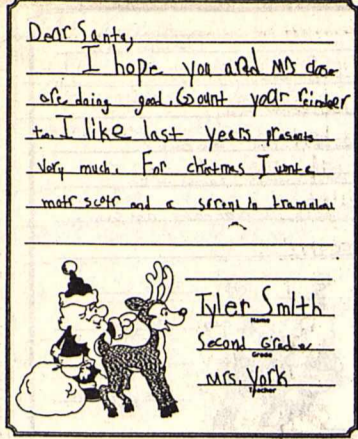 Dear Santa,
I hope you and Mrs close
are doing good. Count your reindeer
to. I like last years presents
vory much. For chistmas I wont a
motr scotr and a
Tyler Smith
Name
Second Grader
Grade
Mrs. York
Teacher